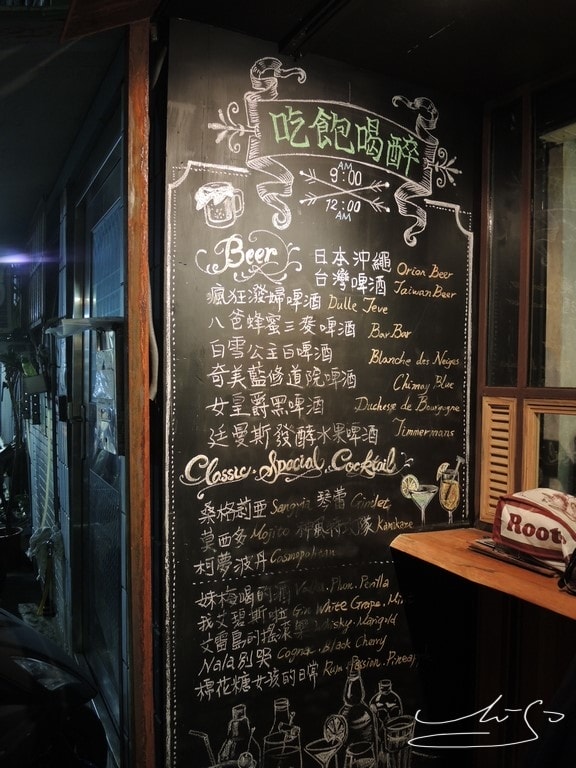 吃飽喝醉
AM
9:00
12:00
AM
Beer
日本沖繩 Orion Beer
台灣啤酒 Taiwan Beer
瘋狂潑婦啤酒 Dulle Teve
八爸蜂蜜三麥啤酒 Bar Bar
白雪公主白啤酒 Blanche des Neiges
奇美藍修道院啤酒 Chimay Blue
女皇爵黑啤酒 Duchesse de Bourgogne
廷曼斯發酵水果啤酒 Timmermans
Classic Special Cocktail
桑格莉亞 Sangria 琴蕾 Gimlet
莫西多 Mojito 神風特 隊 Kamikaze
柯夢波丹 Cosmopolitan
妹梅喝的酒 Vodka. Plum. Perilla
我 艾碧斯啦 Gin White Grape.
艾雷島的搖滾樂 Whisky. Marigold
Nala別哭 Cognac. Black Cherry
棉花糖女孩的日常 Rum. Passion. Pineap
Root